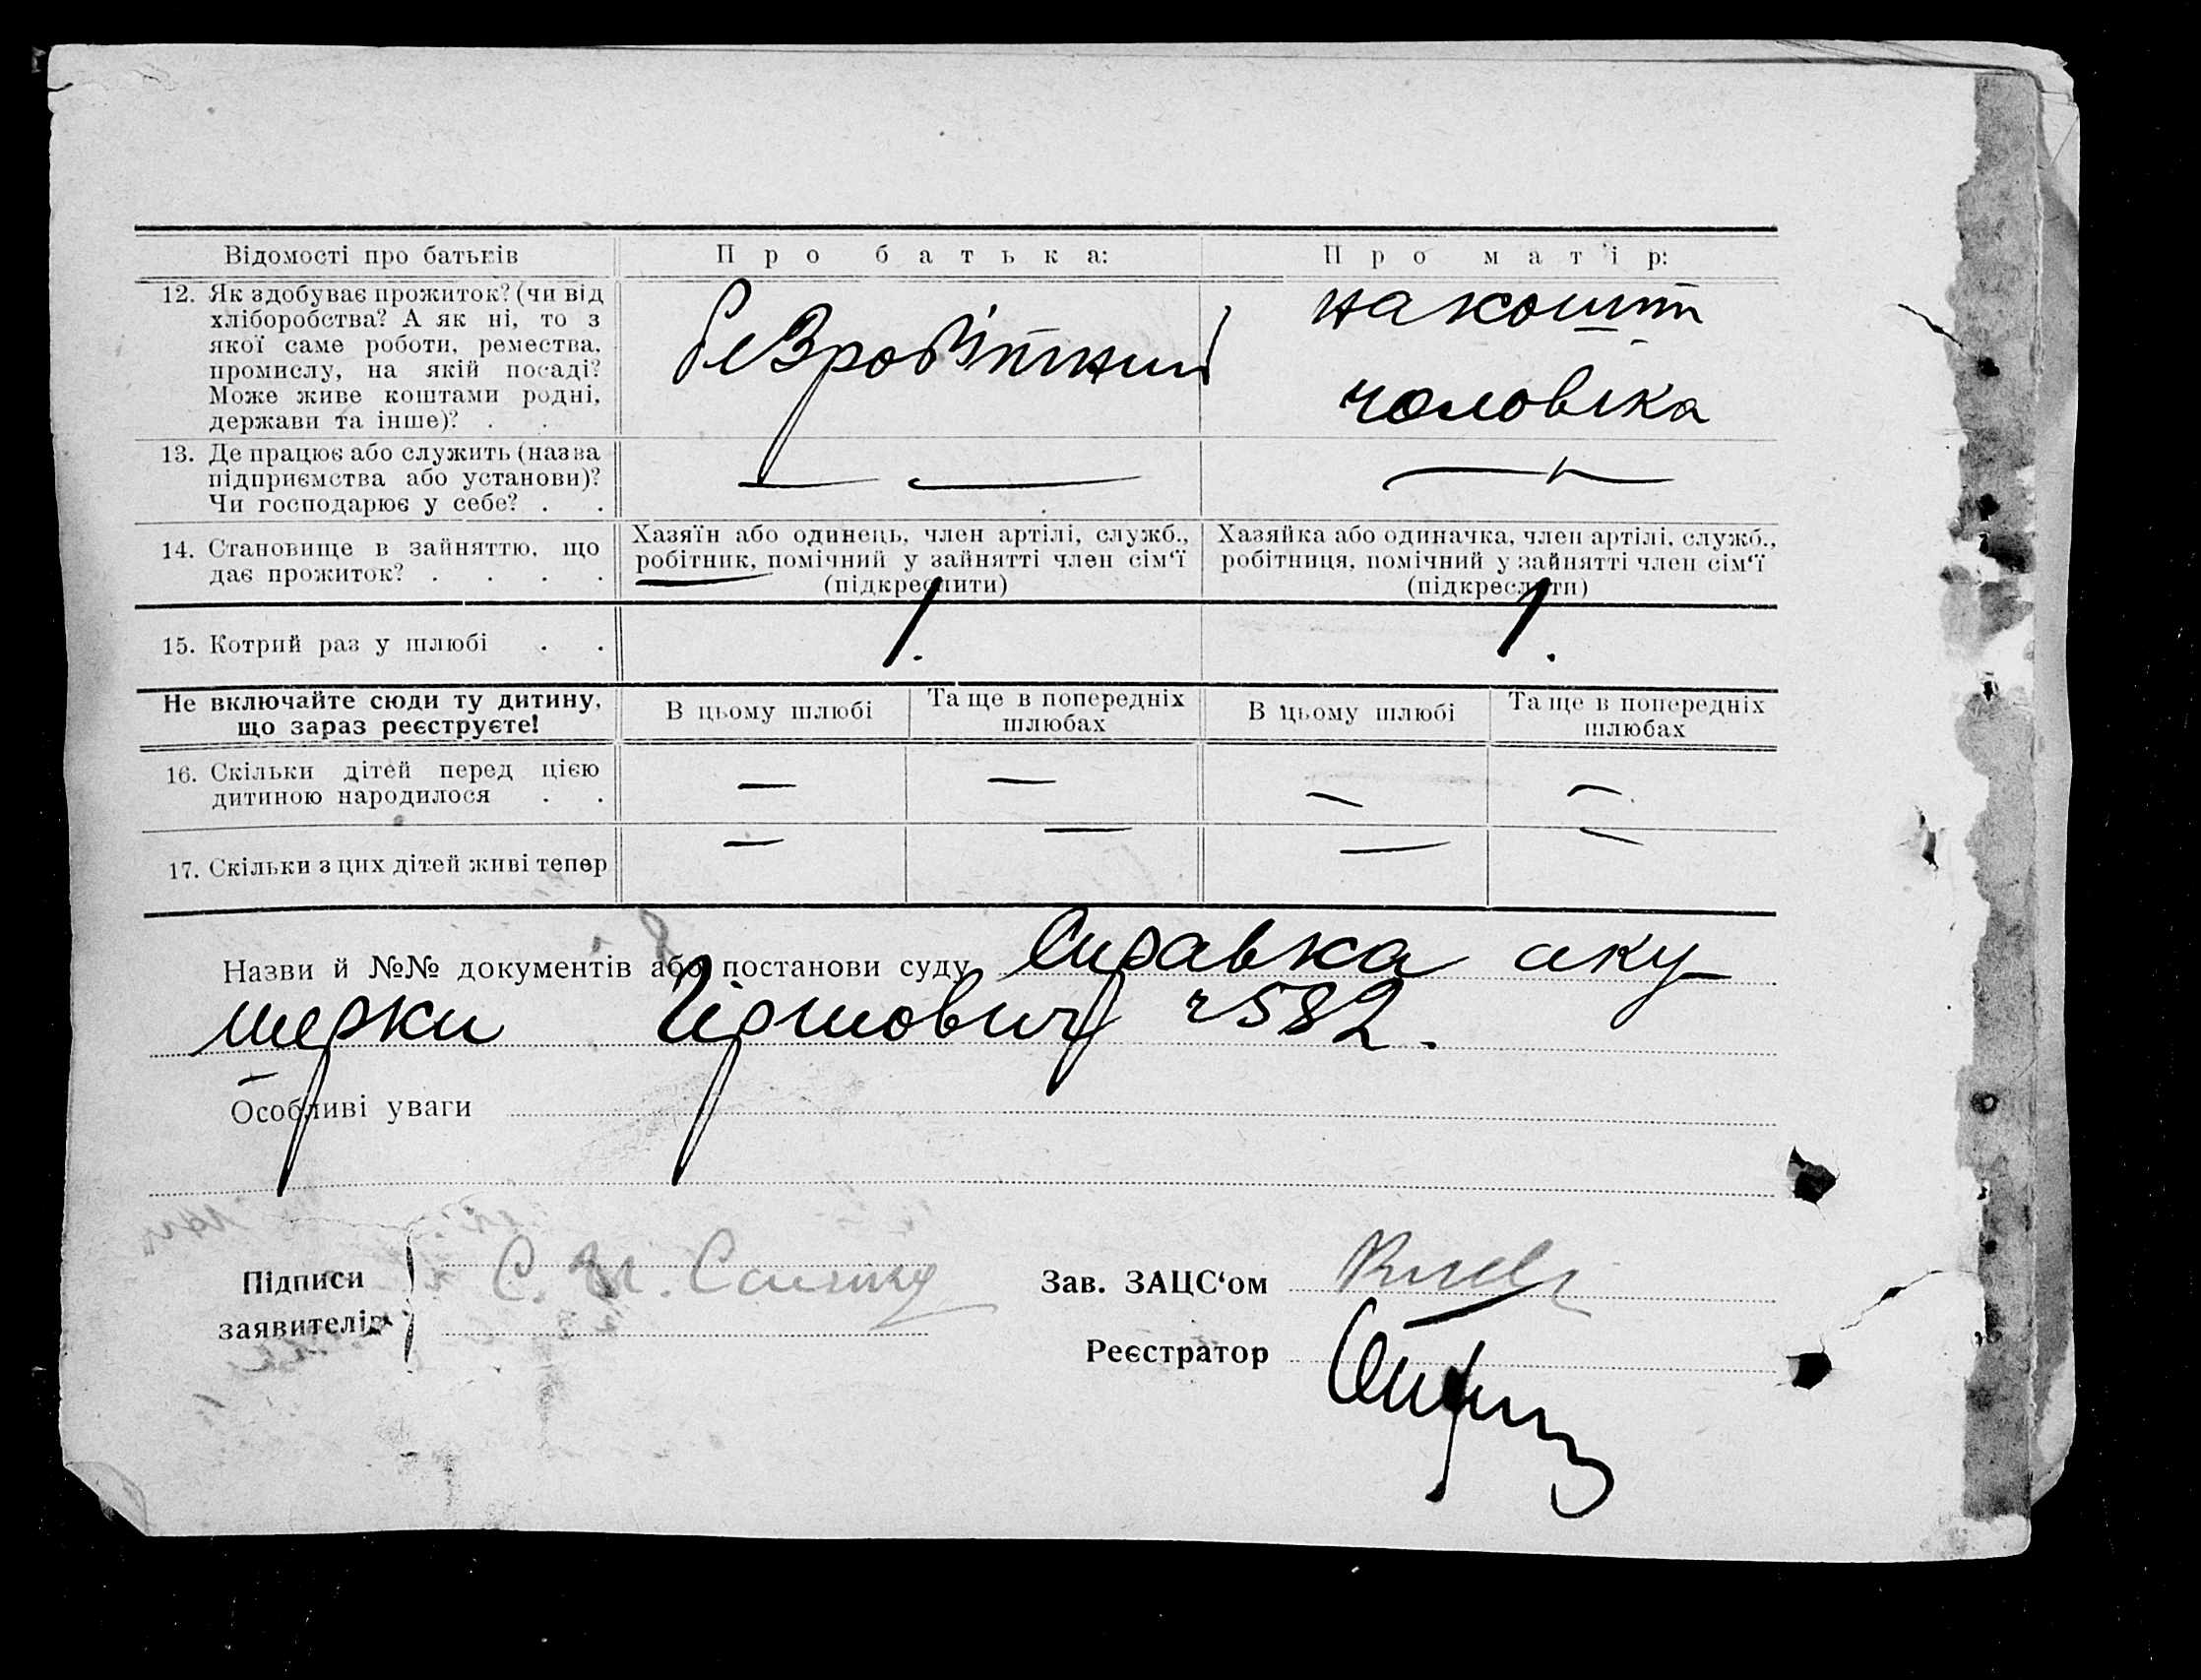 Відомості про батьків
П р о б а т ь к а:
П р о м а т ' і р:
12. Як здобуває прожиток? (чи від
хліборобства? А як ні, то з
якої саме роботи, ремества,
промислу, на якій посаді?
Може живе коштами родні,
держави та інше)? . .
безробітний
на кошти
чоловіка
13. Де працює або служить (назва
підприємства або установи)?
Чи господарює у себе? . .
— —
—
14. Становище в зайняттю, що
дає прожиток? . . . .
Хазяїн або одинець, член артілі, служб.,
робітник, помічний у зайнятті член сім‘ї
(підкреслити)
Хазяйка або одиначка, член артілі, служб.,
робітниця, помічний у зайнятті член сім‘ї
(підкреслити)
15. Котрий раз у шлюбі . .
1.
1.
Не включайте сюди ту дитину,
що зараз реєструєте!
В цьому шлюбі
Та ще в попередніх
шлюбах
В цьому шлюбі
Та ще в попередніх
шлюбах
16. Скільки дітей перед цією
дитиною народилося . .
— — — —
17. Скільки з цих дітей живі тепер
— — — —
Назви й №№ документів або постанови суду Справка аку
шерки Гіршович ч 582.
Особливі уваги
Підписи
заявителів
С.
Зав. ЗАЦС‘ом
Реєстратор